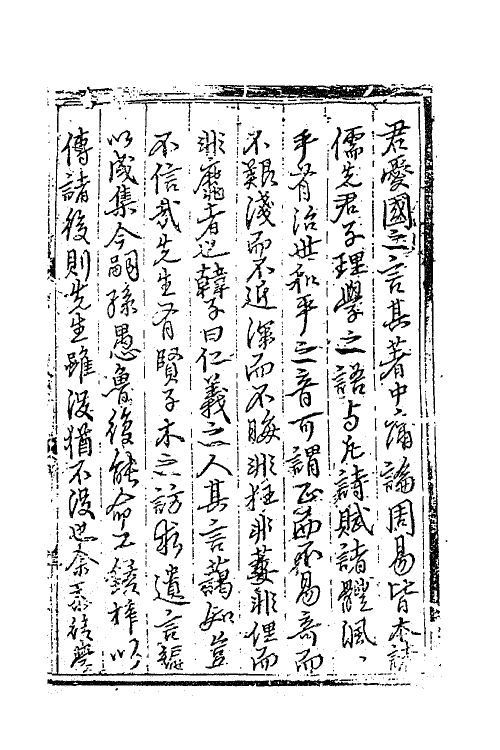 君愛國之言其著中庸論周易皆本諸
儒先君子理學之語与凡詩賦諸體渢、
乎有治世和平之音可謂正而不易奇而
不艱淺而不近深而不晦非狂非萎非俚而
非靡者也韓子曰仁義之人其言藹如豈
不信哉先生有賢子木之訪求遺言編
以成集今嗣孫愚魯復能命工鋟梓以
傳諸後則先生雖没猶不没也余忝諸學